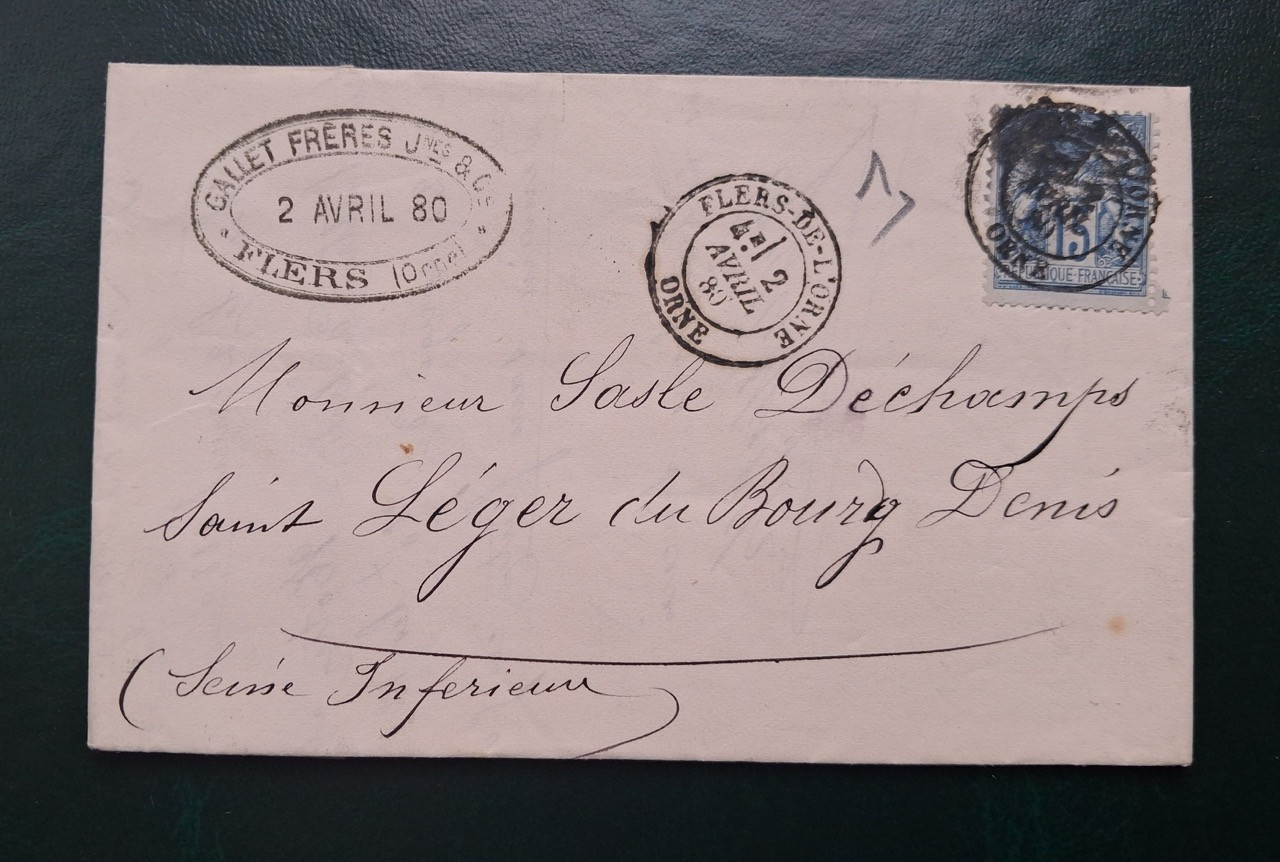 GALLET FRÈRES Jnes & Cie
2 AVRIL 80
FLERS (Orne)
FLERS-DE-L'ORNE
2
AVRIL
80
ORNE
ORNE
15
REPUBLIQUE FRANÇAISE
Monsieur Sasle Déchamps
Saint Léger du Bourg Denis
(Seine Inferieure